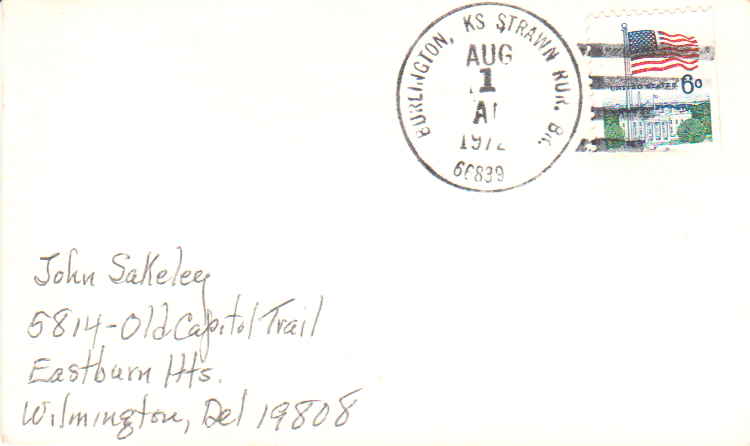 BURLINGTON, KS STRAWN RUR. BR.
AUG
1
1972
66839
UNITED STATES 6c
John Sakeley
5814-Old Capitol Trail
Eastburn Hts.
Wilmington, Del 19808